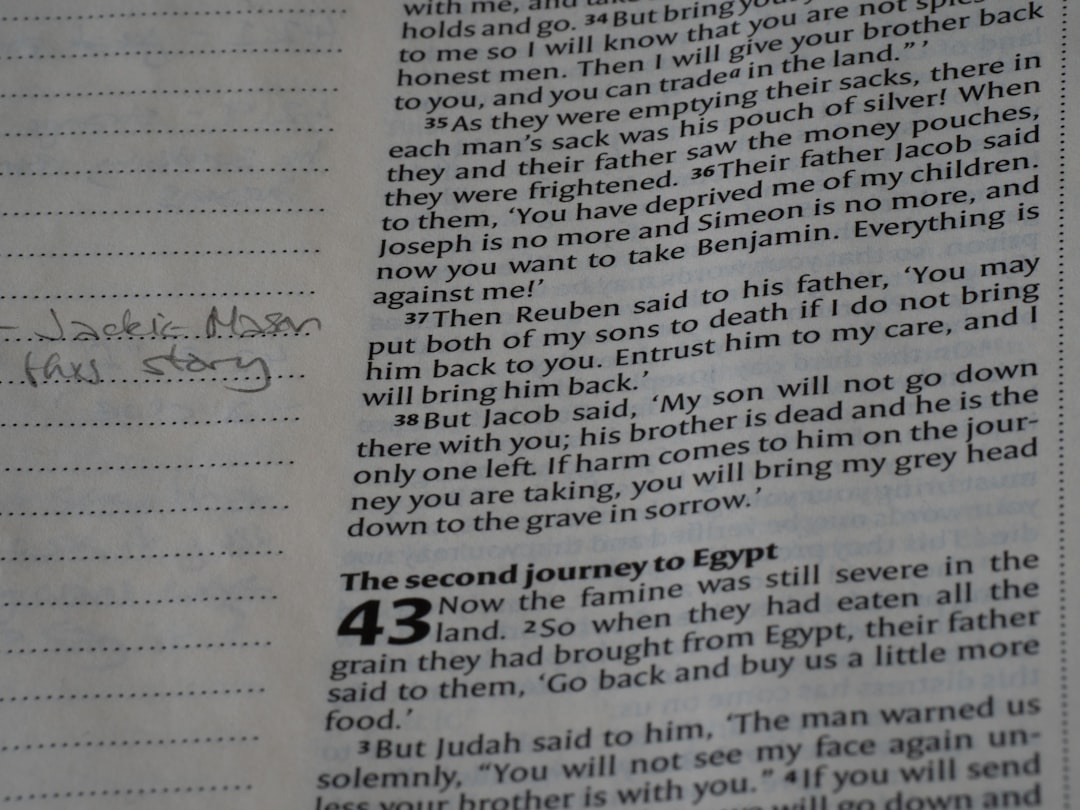 with me, and take
holds and go. 34 But bring your
to me so I will know that you are not spies
honest men. Then I will give your brother back
to you, and you can tradeᵃ in the land.” ’
35 As they were emptying their sacks, there in
each man’s sack was his pouch of silver! When
they and their father saw the money pouches,
they were frightened. 36 Their father Jacob said
to them, ‘You have deprived me of my children.
Joseph is no more and Simeon is no more, and
now you want to take Benjamin. Everything is
against me!’
37 Then Reuben said to his father, ‘You may
put both of my sons to death if I do not bring
him back to you. Entrust him to my care, and I
will bring him back.’
38 But Jacob said, ‘My son will not go down
there with you; his brother is dead and he is the
only one left. If harm comes to him on the jour-
ney you are taking, you will bring my grey head
down to the grave in sorrow.’
The second journey to Egypt
43 Now the famine was still severe in the
land. 2 So when they had eaten all the
grain they had brought from Egypt, their father
said to them, ‘Go back and buy us a little more
food.’
3 But Judah said to him, ‘The man warned us
solemnly, “You will not see my face again un-
less your brother is with you.” 4 If you will send
will go down and
- Jackie Mason
this story